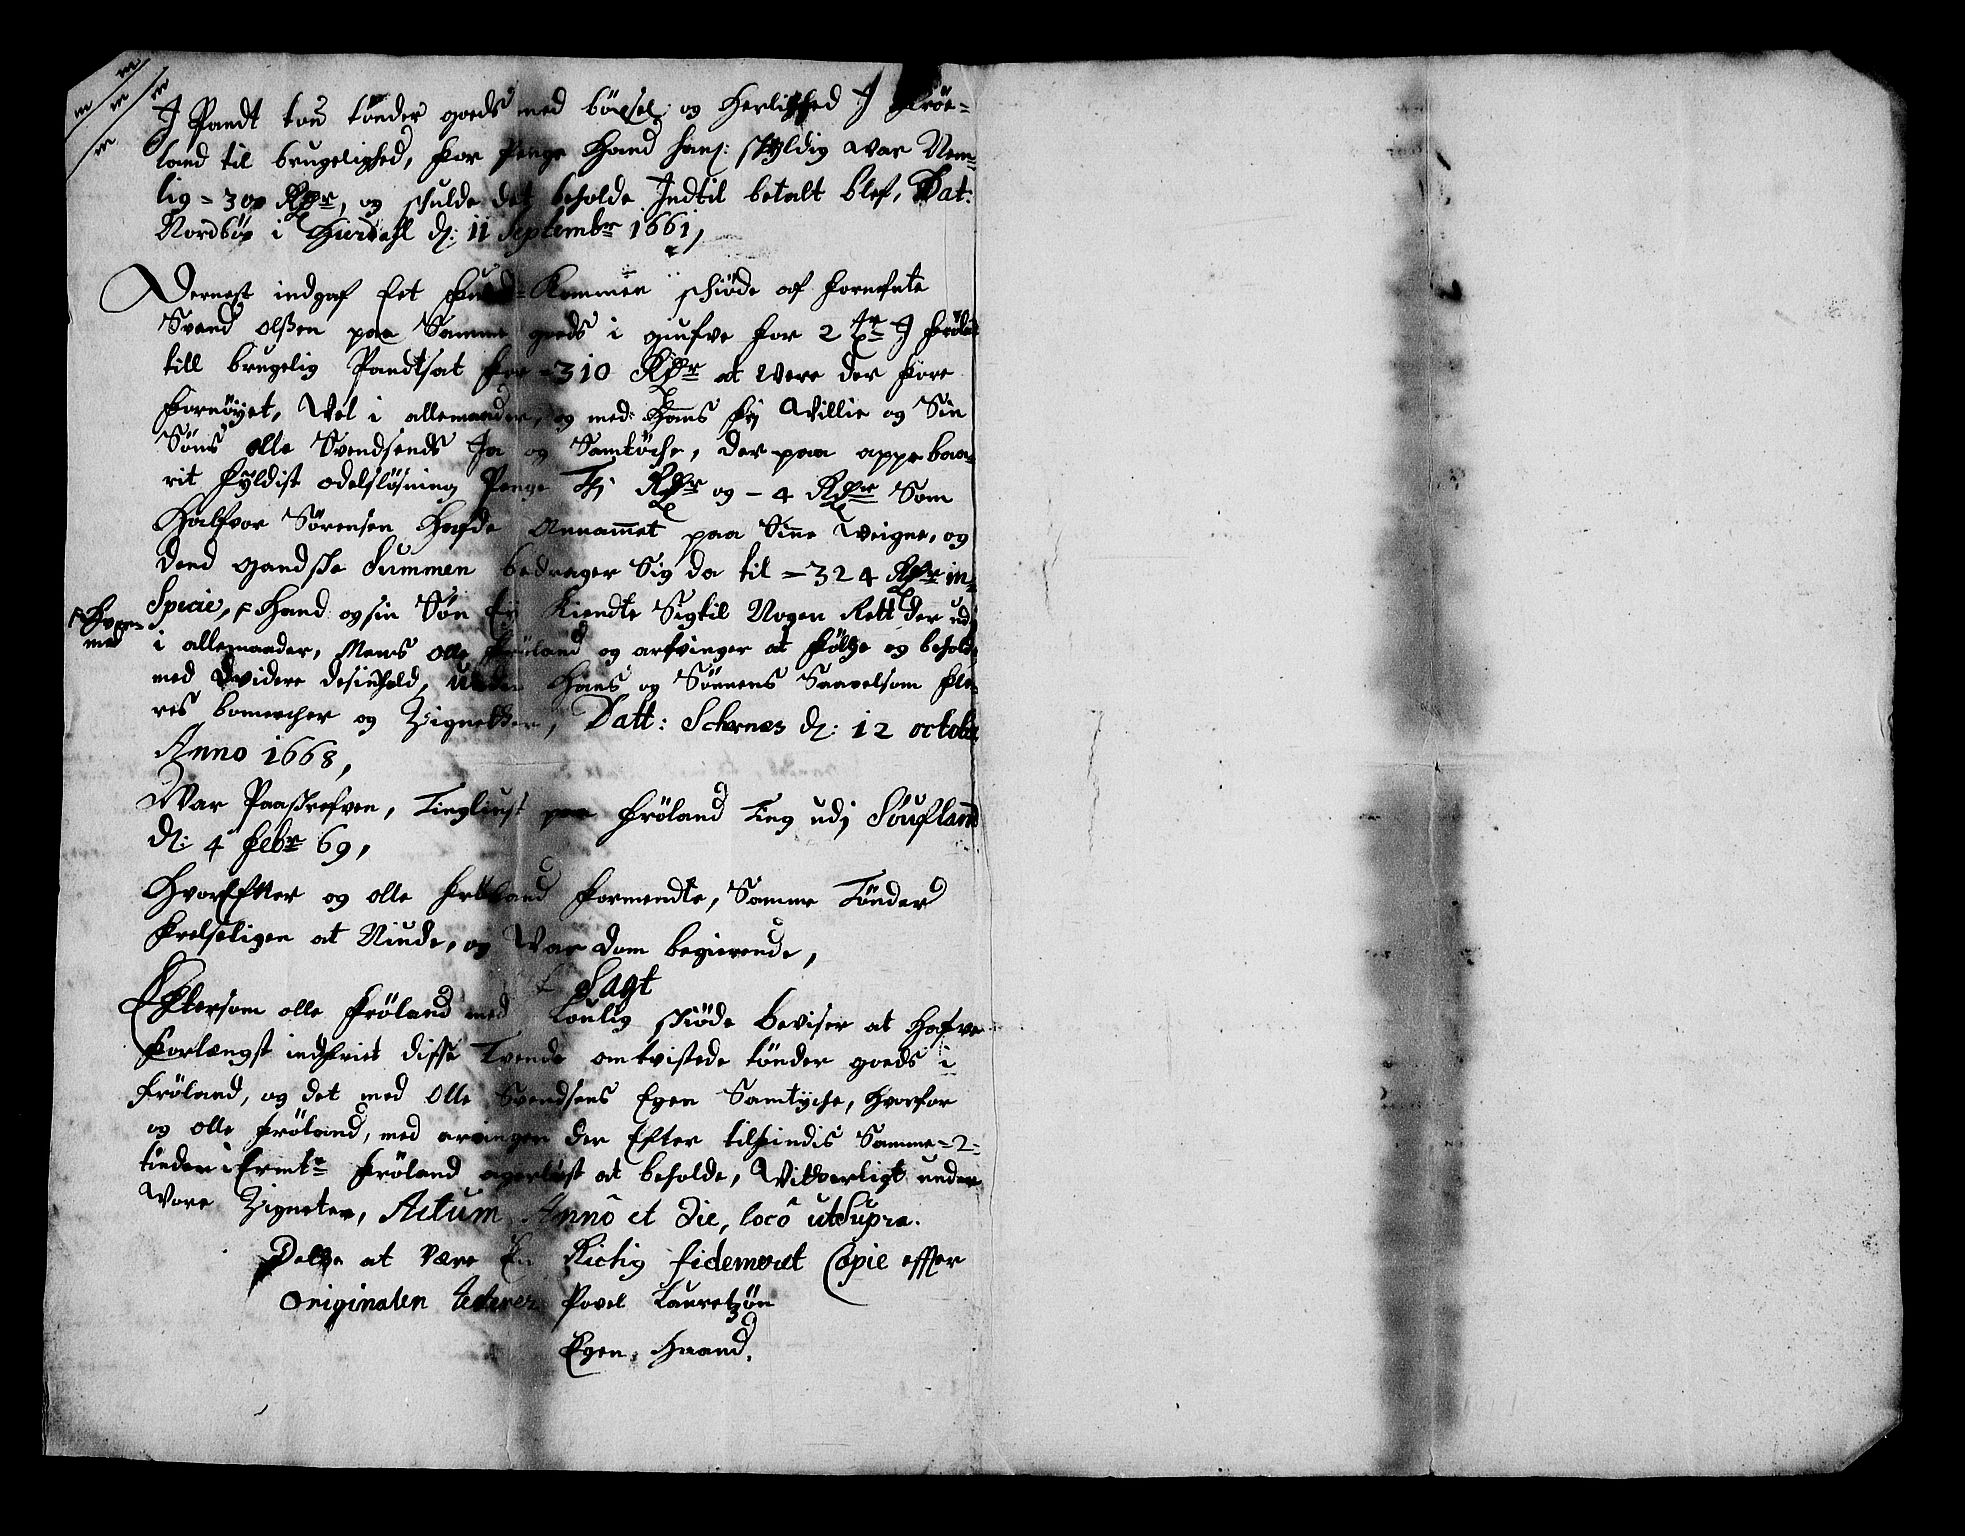 J Pandt tou tønder goeds med böxsel og Herlighed J Fröe=
land til brugelighed, for Penge Hand hans skyldig war Nem=
lig = 300 Rdr, og skulde det beholde Indtil betalt blef, Dat:
Nordbÿe i Hurdahl d: 11 Septembr 1661,
Dernest indgaf Eet Fuldkommen skiøde af fornefnte
Svend olßen paa Samme goeds i giufve for 2 tr J Fröland
till brugelig Pandtsat for =310 Rdr at were der fore
fornöyet, Vel i allemaader, og med Hans frj Willie og Sin
Söns olle Svendsends Ja og Samtöche, der paa oppebaa=
rit fyldist odelsløsning Penge Tj Rdr og - 4 Rdr Som
Halfvor Sörensen Hafde Annammet paa Sine Weigne, og
dend gandske Summen bedrager Sig da til = 324 Rdr in=
Specie, Hand og sin Søn Ej Kiendte Sig til Nogen Rett der ud
Hvor=
med
i allemaader, Mens olle Fröland og arfvinger at följe og beholde
med widere desinhold, Under Hans og Sönnens Saavelsom Fle=
res bomercher og Zignetter, Datt: Schrnæs d: 12 octobr
Anno 1668,
War Paaskrefven, Tingliust paa Fröland Ting udj Söufland
d: 4 Febr 69,
HvorEfter og olle Fröland formendte, Samme Tönder
Frelseligen at Niude, og War dom begierende,
Sagt
Eftersom olle Fröland med Loulig skiöde beviser at Hafve
forlængst indfriet disse Tvende omtvistede tönder goeds i
Fröland, og det med Olle Svendsens Egen Samtyche, Hvorfor
og olle Fröland, med arvinger der Efter tilfindis Samme =2=
tönder i Ermte Fröland ageröst at beholde, Witterligt under
Wore Zigneter, Actum Anno et Die, loco ut Supra.
Dette at være En Richtig fidemeret Copie effter
Originalen Povel Lauretzön
Egen Haand.